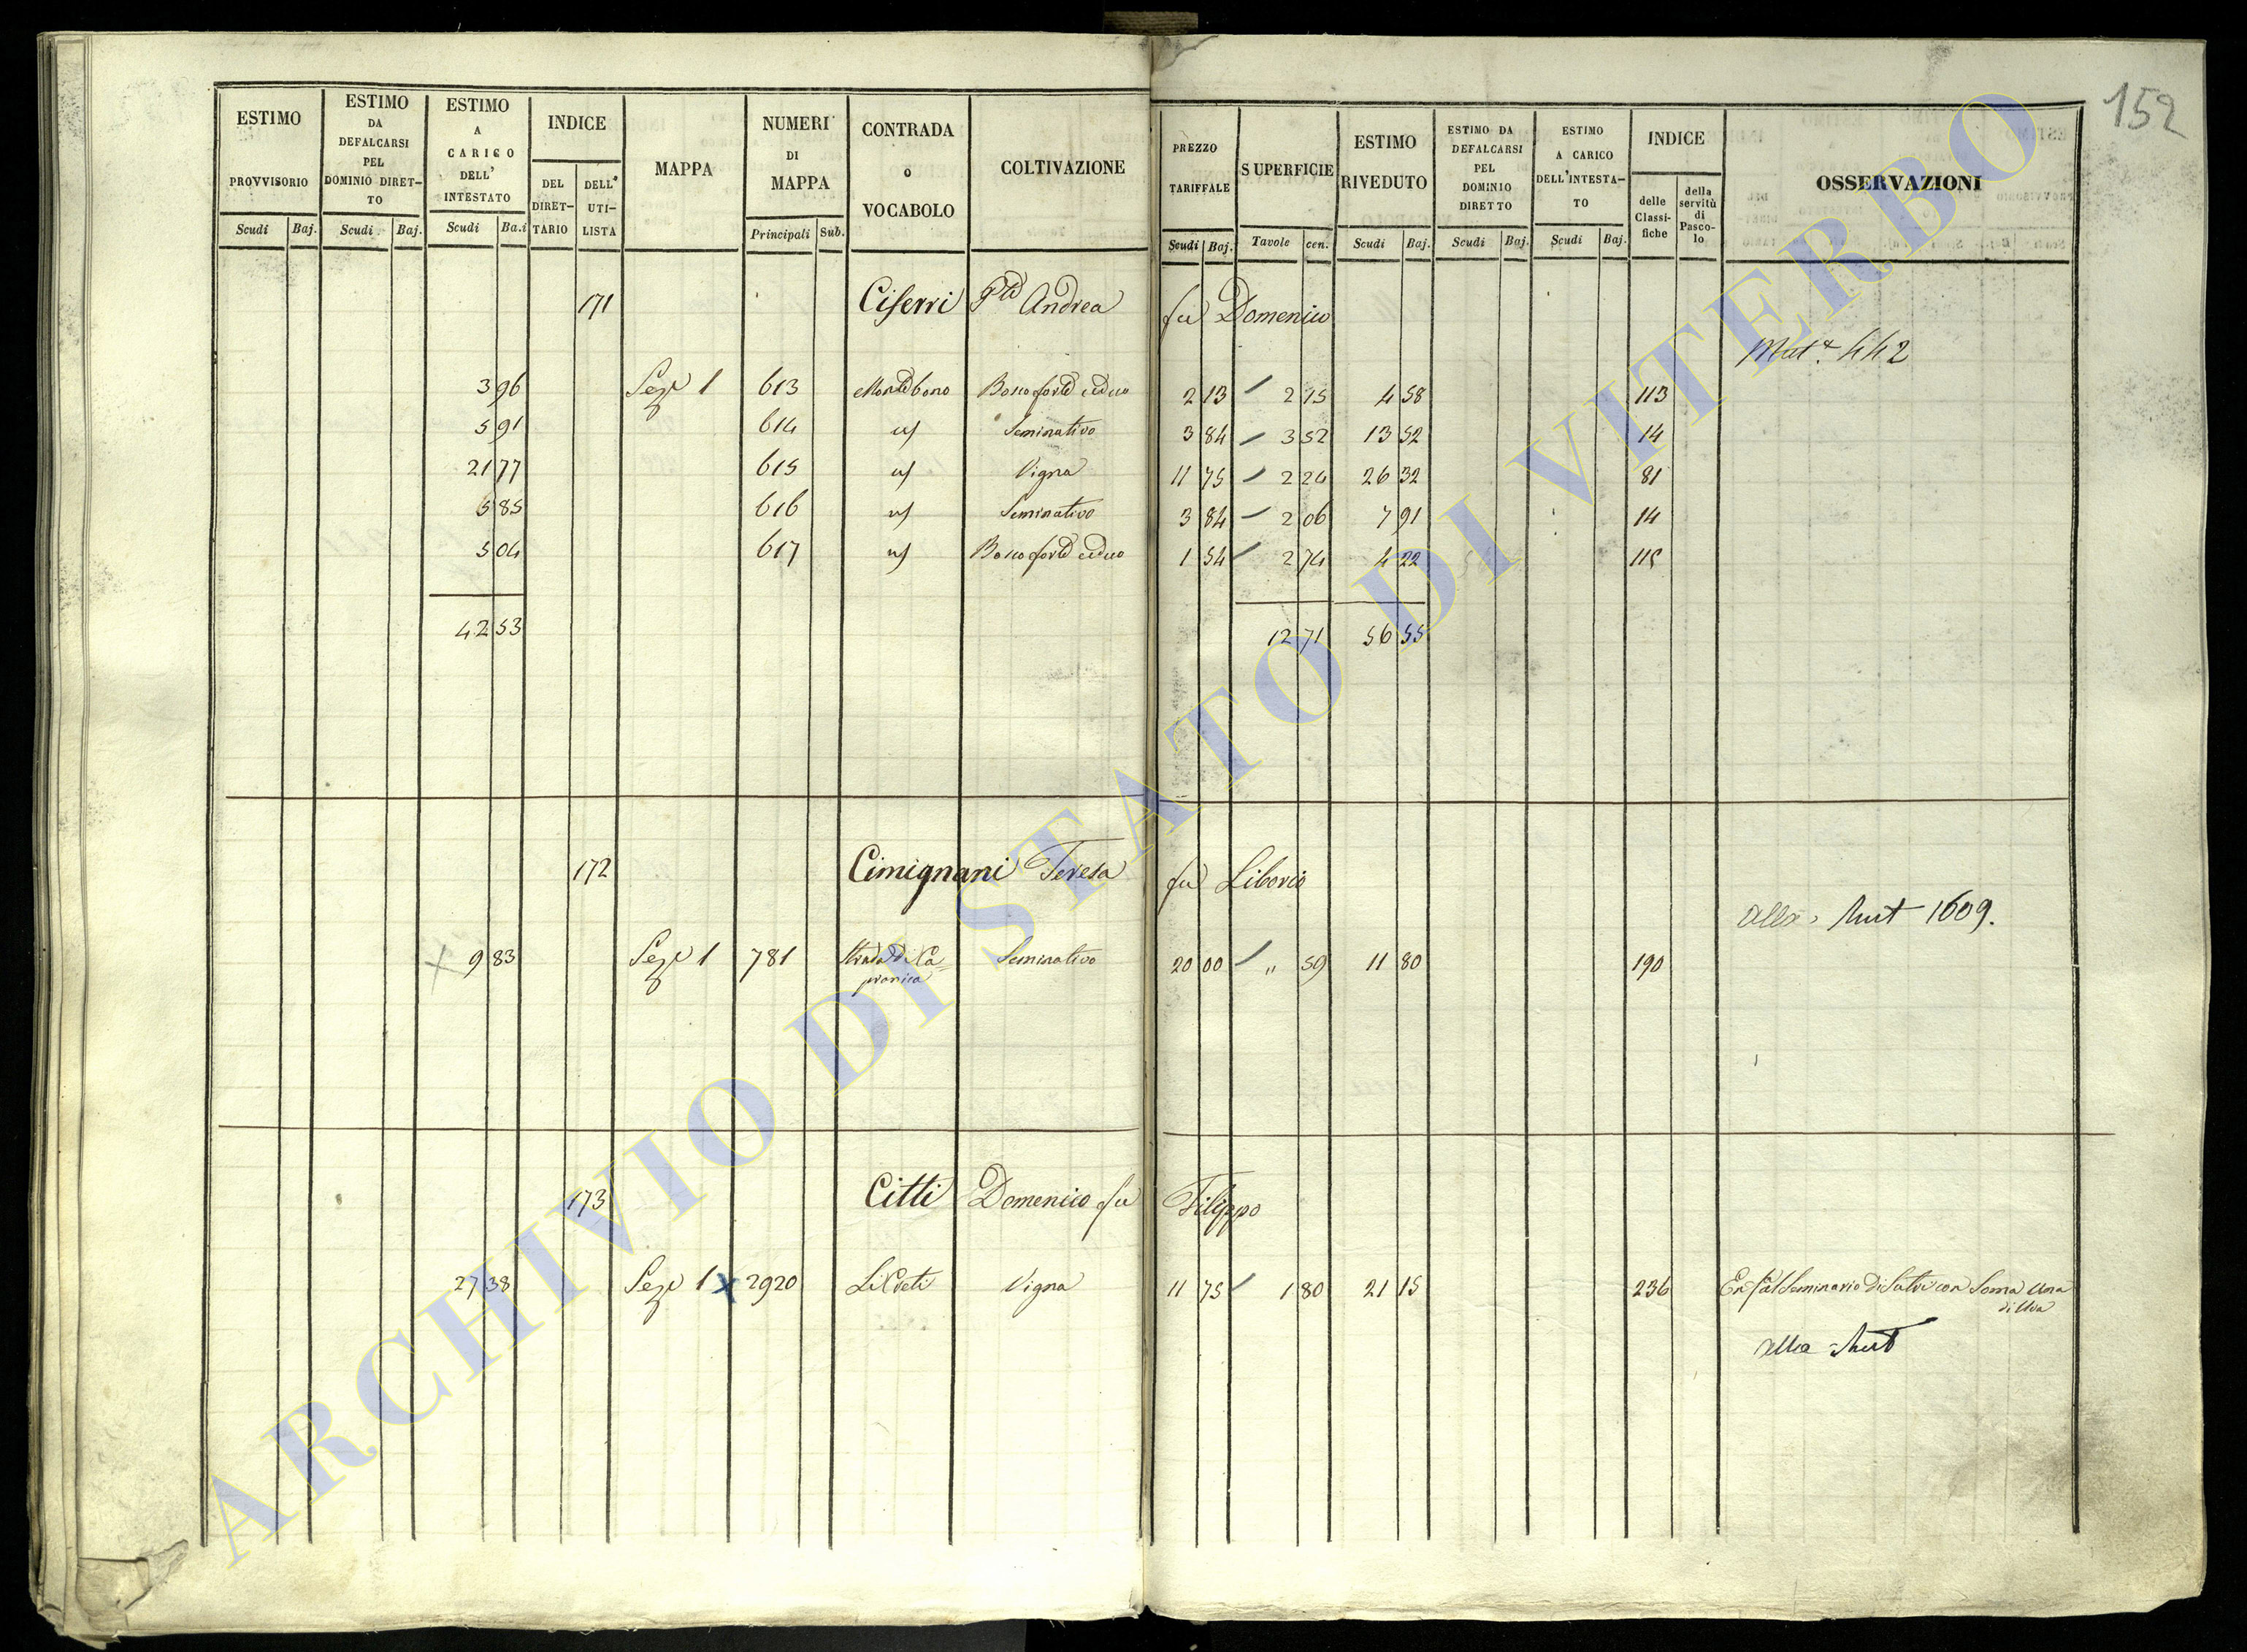 152
ESTIMO PROVVISORIO
ESTIMO DA DEFALCARSI PEL DOMINIO DIRET-TO
ESTIMO A CARICO DELL' INTESTATO
INDICE
DEL DIRET-TARIO
DELL' UTI-LISTA
MAPPA
NUMERI DI MAPPA
CONTRADA O VOCABOLO
COLTIVAZIONE
PREZZO TARIFFALE
SUPERFICIE
ESTIMO RIVEDUTO
ESTIMO DA DEFALCARSI PEL DOMINIO DIRETTO
ESTIMO A CARICO DELL'INTESTA-TO
INDICE
delle Classi-fiche
della servitù di Pasco-lo
OSSERVAZIONI
Scudi Baj. Scudi Baj. Scudi Ba.i Principali Sub. Scudi Baj. Tavole cen. Scudi Baj. Scudi Baj. Scudi Baj.
171 Ciferri Andrea fu Domenico
442
3 96 Sez 1 613 Montebono Bosco forte ceduo 2 13 2 15 4 58 113
5 91 614 Seminativo 3 84 3 52 13 52 14
21 77 615 Vigna 11 75 2 24 26 32 81
5 85 616 Seminativo 3 84 2 06 7 91 14
5 04 617 Bosco forte ceduo 1 54 2 74 4 22 115
42 53 12 71 56 55
172 Cimignani Teresa fu Liborio
alla Mut 1609.
9 83 Sez 1 781 Strada di Ca= Seminativo 20 00 " 59 11 80 190
pranica
173 Citti Domenico fu Filippo
27 38 Sez 1 x 2920 Vigna 11 75 1 80 21 15 236 Seminario di Sutri con Soma Una
di Uva
alla Mut
ARCHIVIO DI STATO DI VITERBO